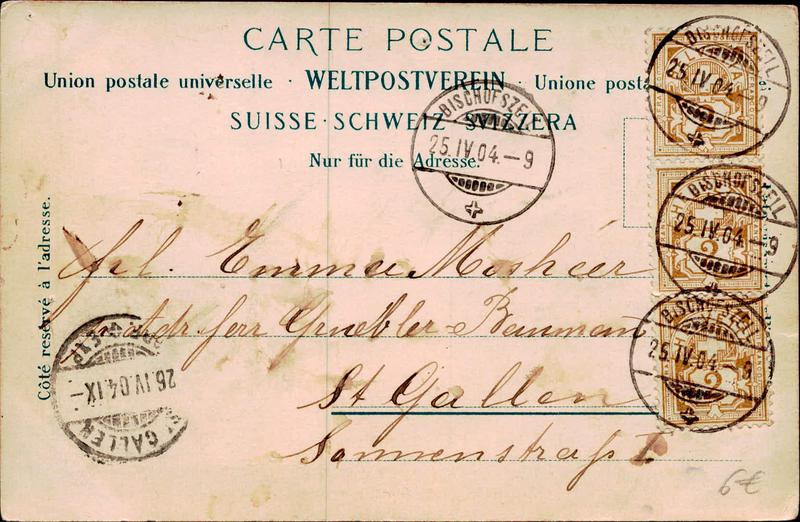 CARTE POSTALE
Union postale universelle · WELTPOSTVEREIN · Unione posta
SUISSE · SCHWEIZ SVIZZERA
Nur für die Adresse.
Côté réservé à l'adresse.
BISCHOFSZELL
25.IV.04.–9
BISCHOFSZELL
25.IV.04.–9
BISCHOFSZELL
25.IV.04.–9
2
BISCHOFSZELL
25.IV.04.–9
2
Frl. Emma
Herr Gruebler-Baumann
St Gallen
Sonnenstraße
GALLEN
26.IV.04.IX–
6€